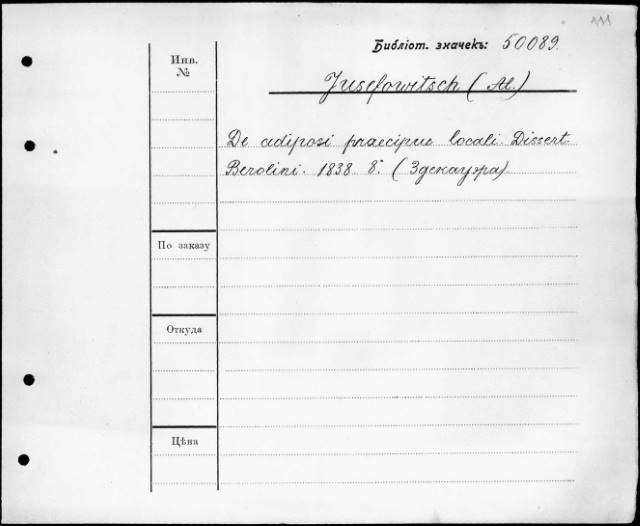 111
Библіот. значекъ: 50089.
Инв.
№
Jusefowitsch (Al.)
De adiposi praecipue locali. Dissert.
Berolini. 1838 8°. (Здекауэра).
По заказу
Откуда
Цѣна